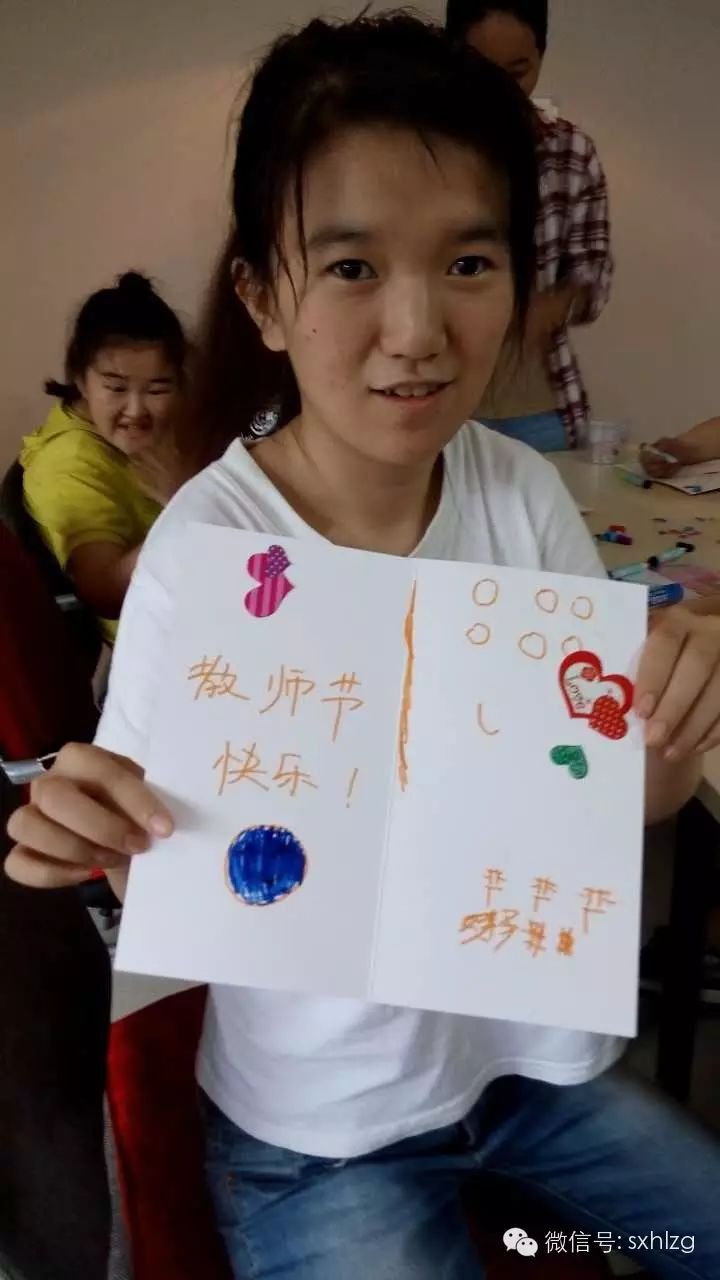 教师节
快乐!
Love
节 节 节
微信号: sxhlzg